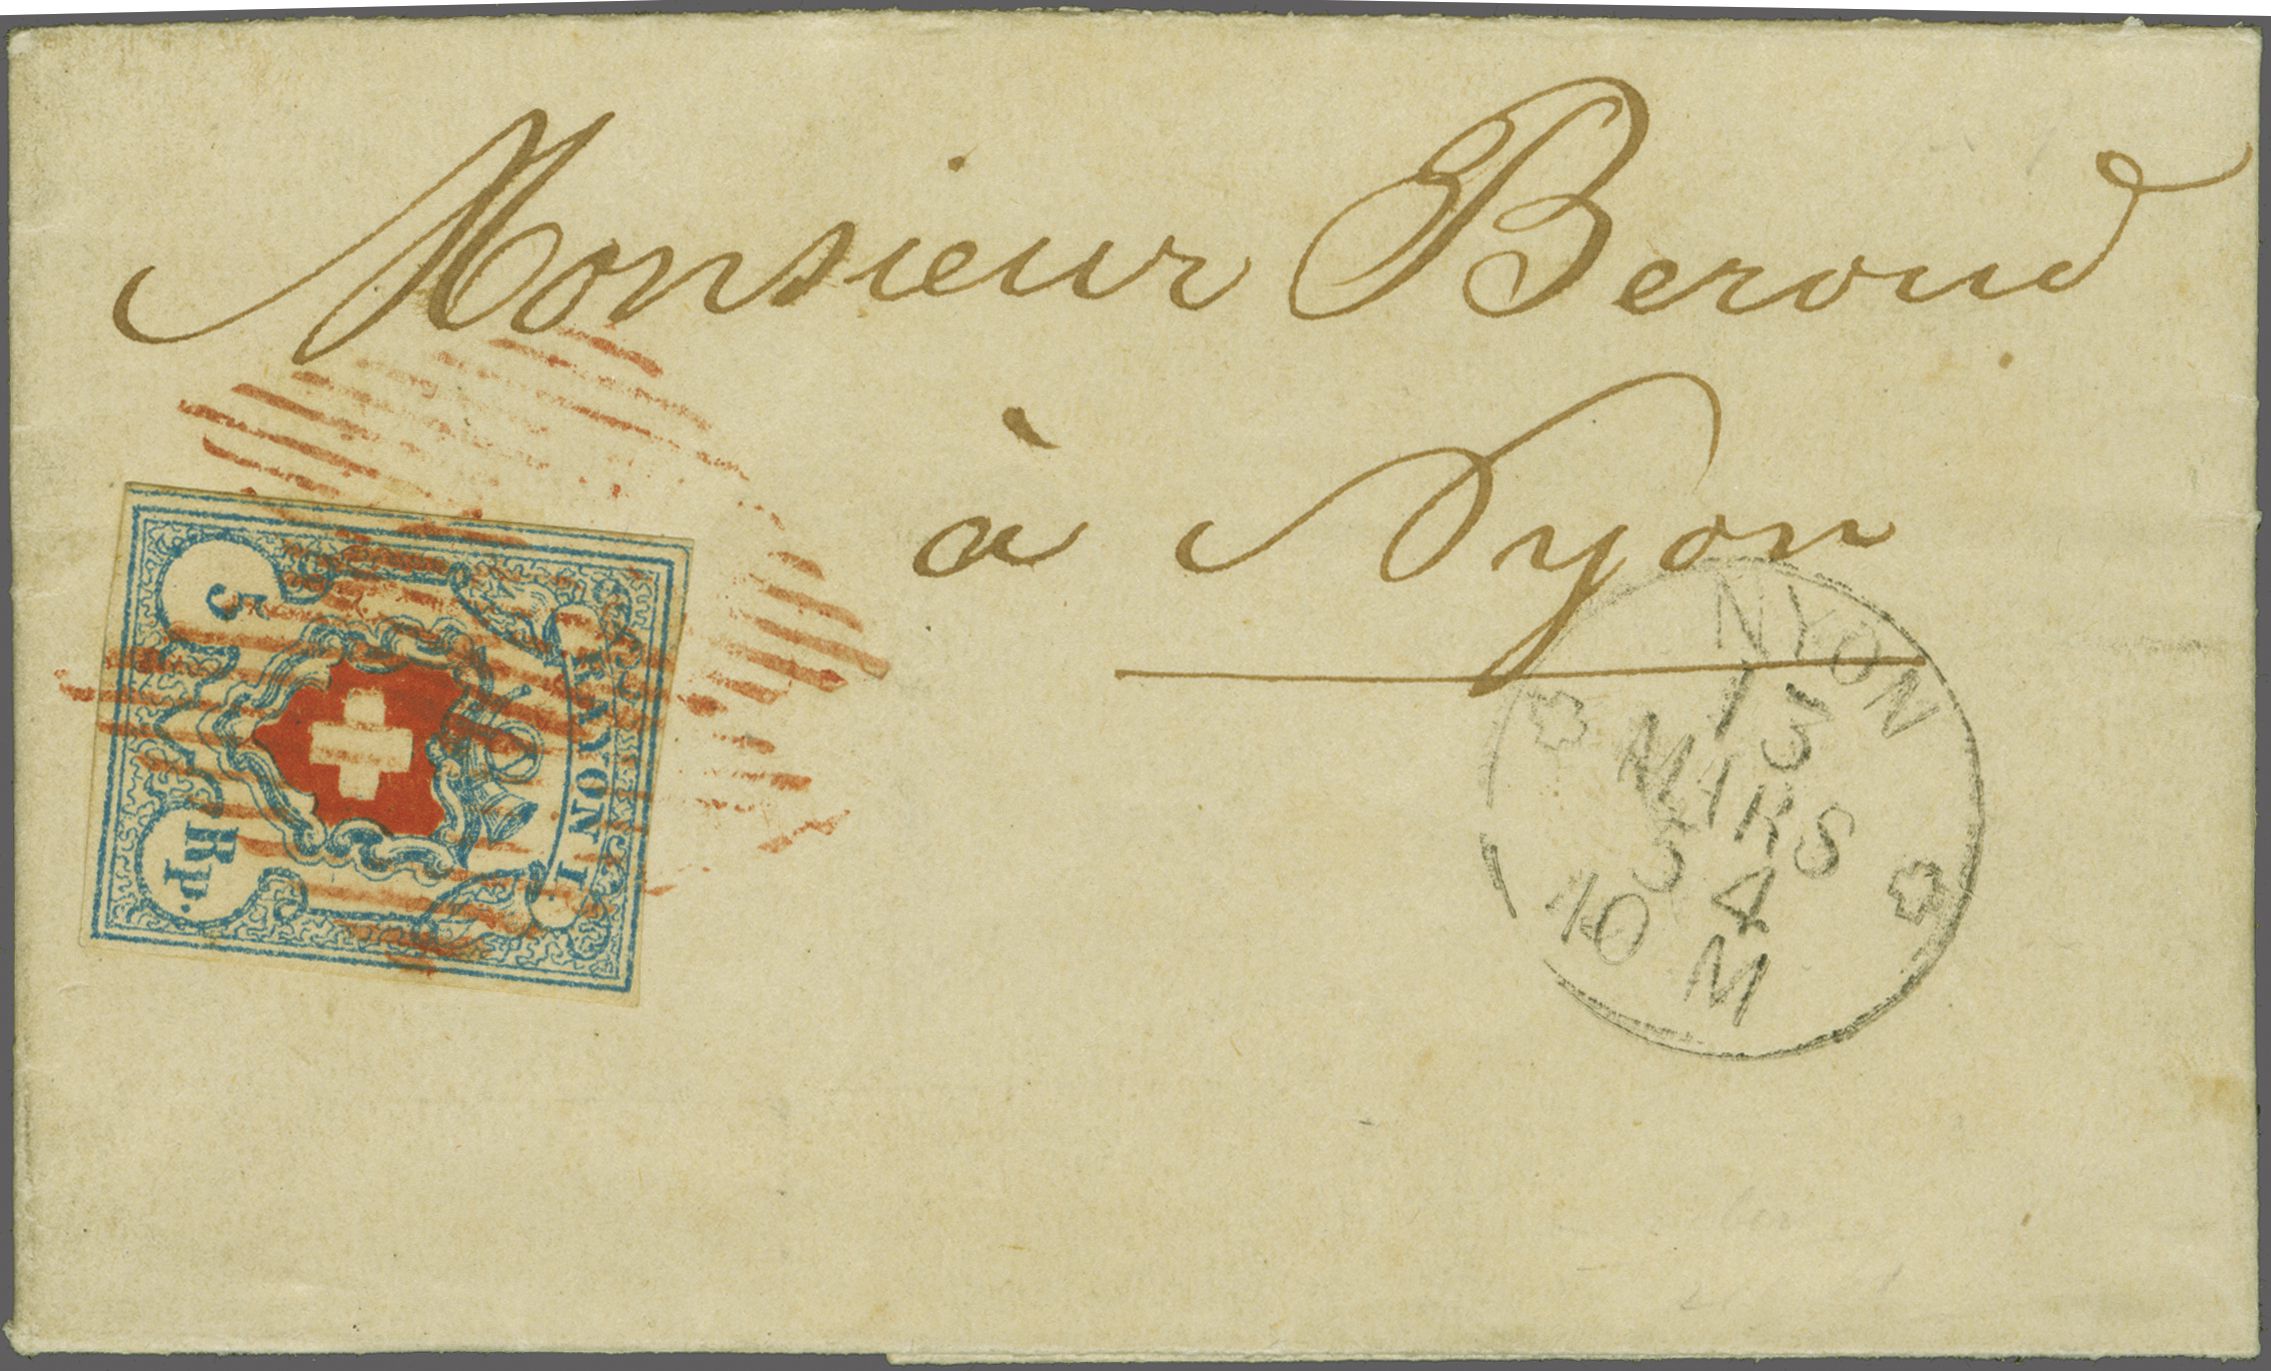 Monsieur Beroud
à Nyon
RAYON I.
5 Rp.
NYON
13
MARS
54
10 M